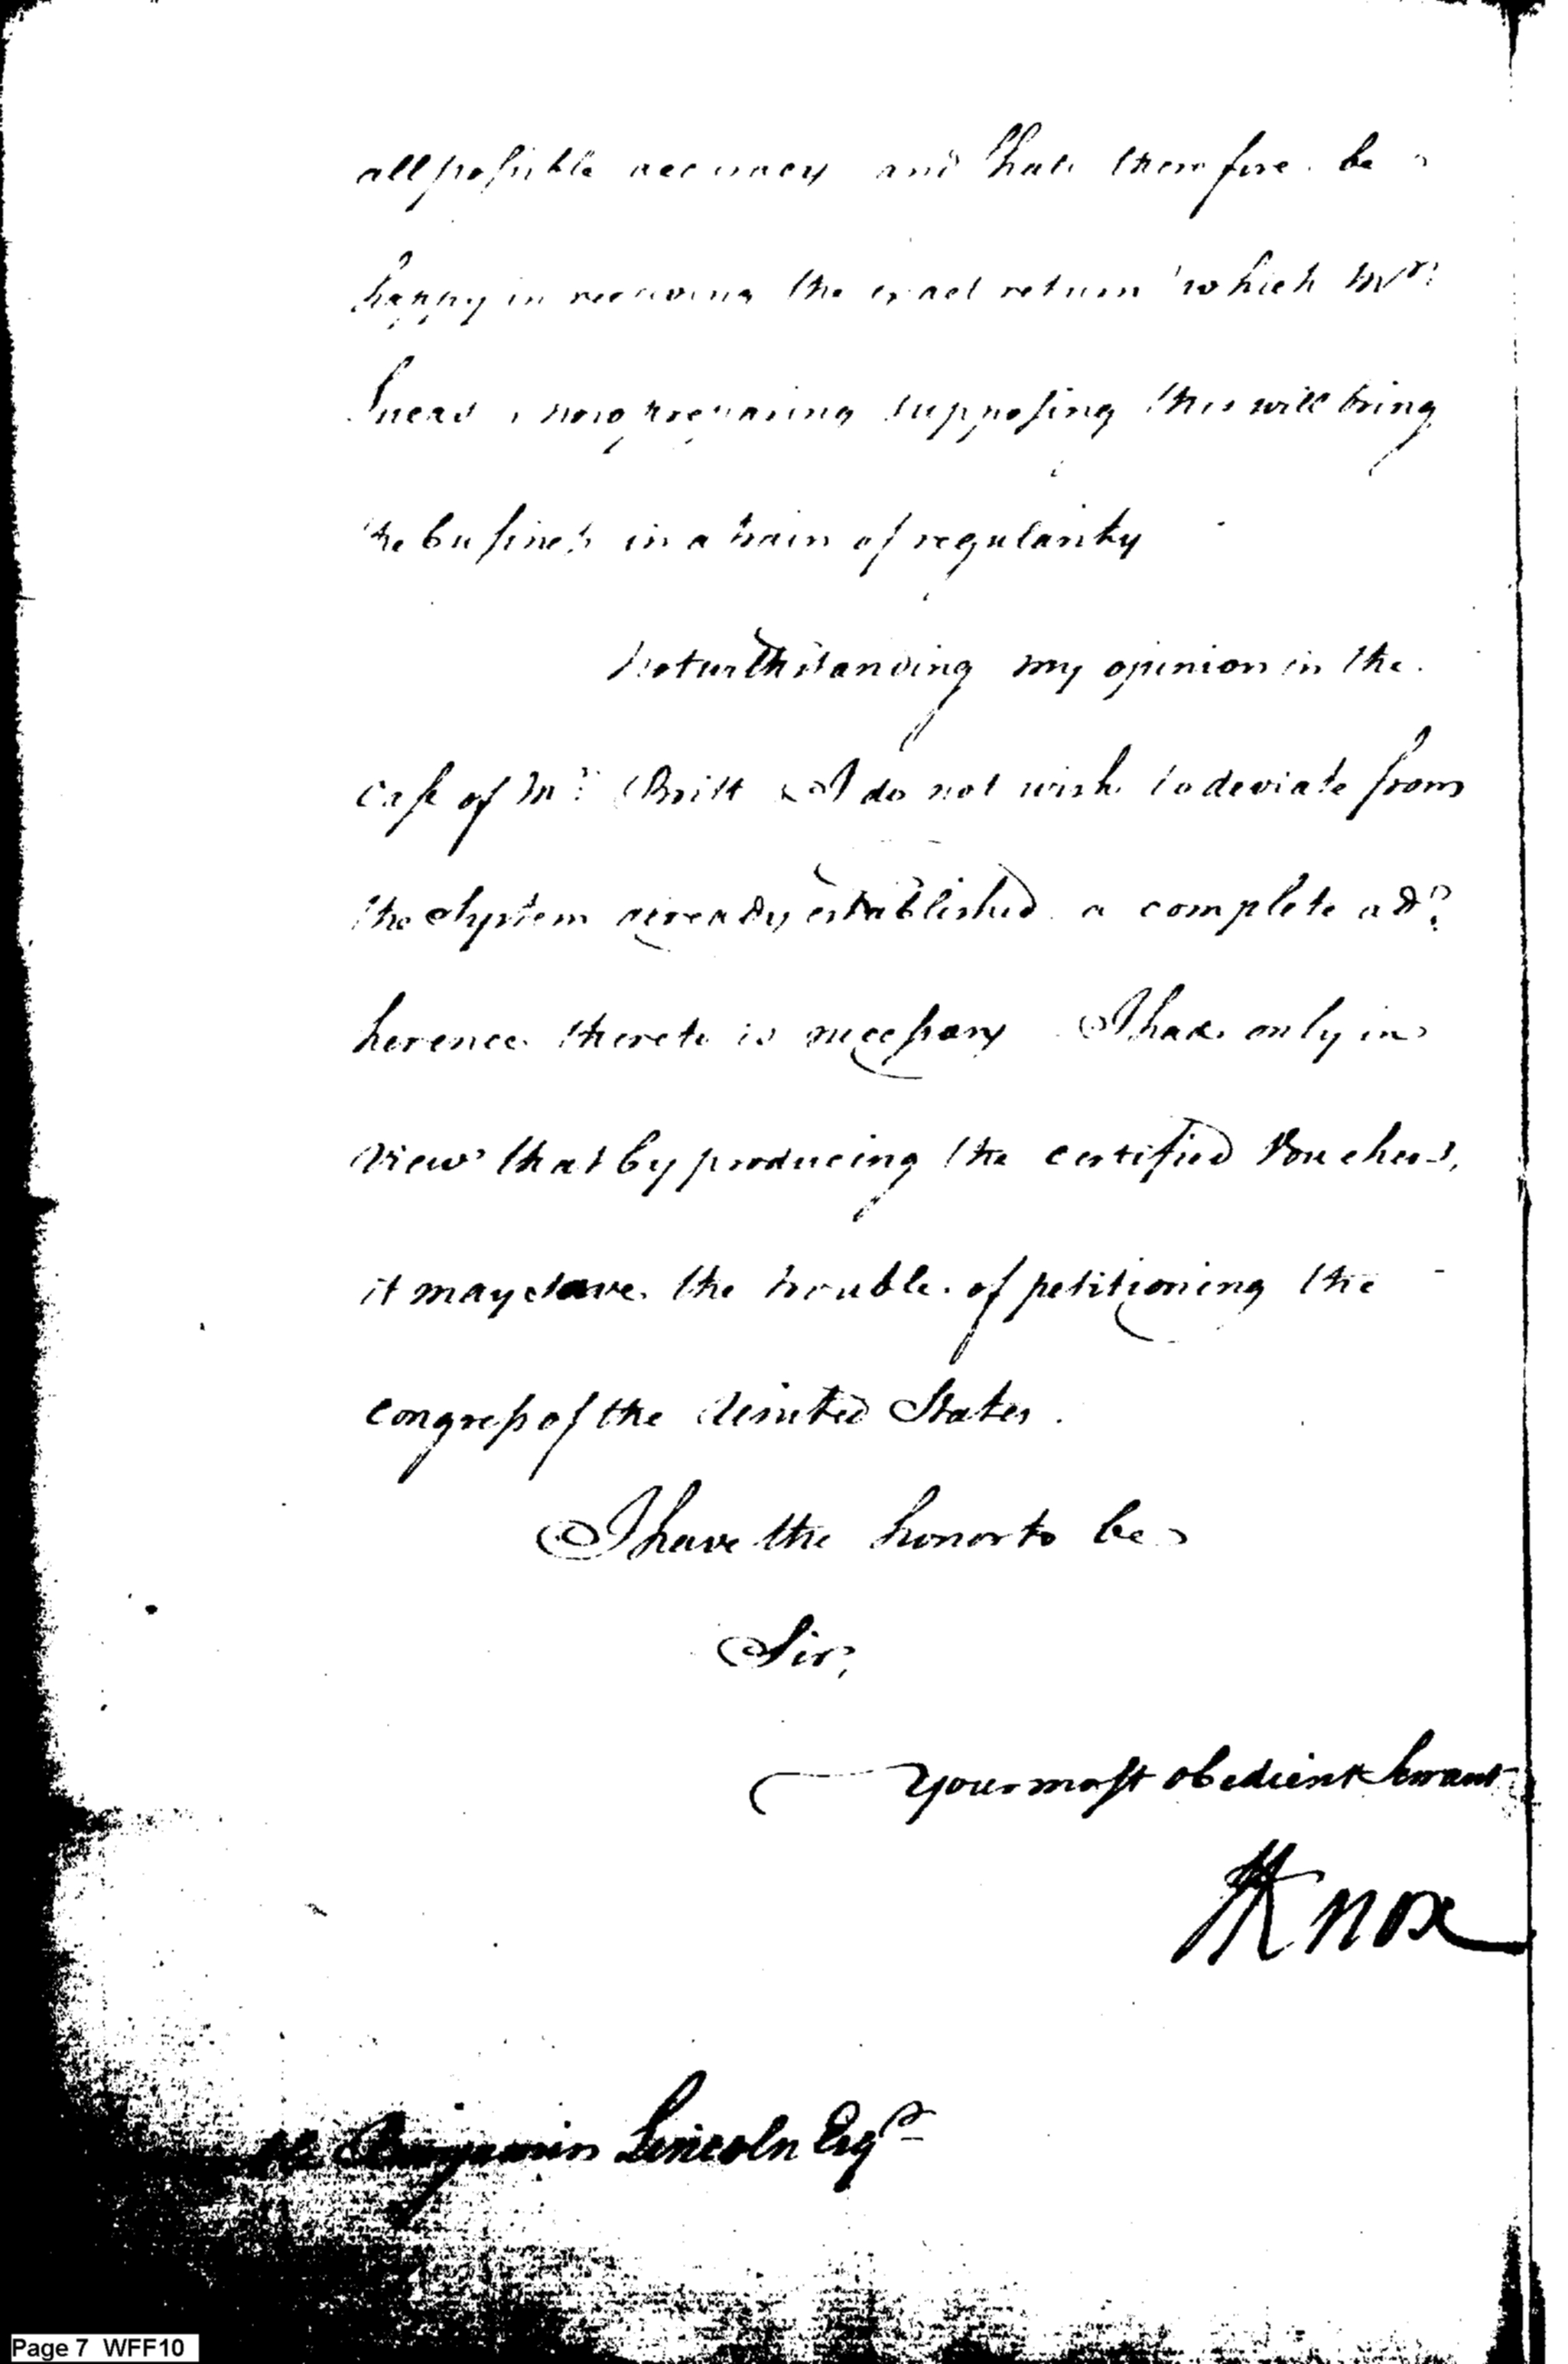 all possible accuracy and shall therefore be
happy in receiving the exact return which Mr.
is now preparing supposing this will bring
the business in a train of regularity
Notwithstanding my opinion in the
case of Mr. Britt I do not wish to deviate from
the System already established a complete ad:
herence thereto is necessary I have only in
view that by producing the certified Vouchers,
it may save the trouble of petitioning the
congress of the United States.
I have the honor to be
Sir,
Your most obedient Servant
HKnox
Benjamin Lincoln Esqr
Page 7 WFF10